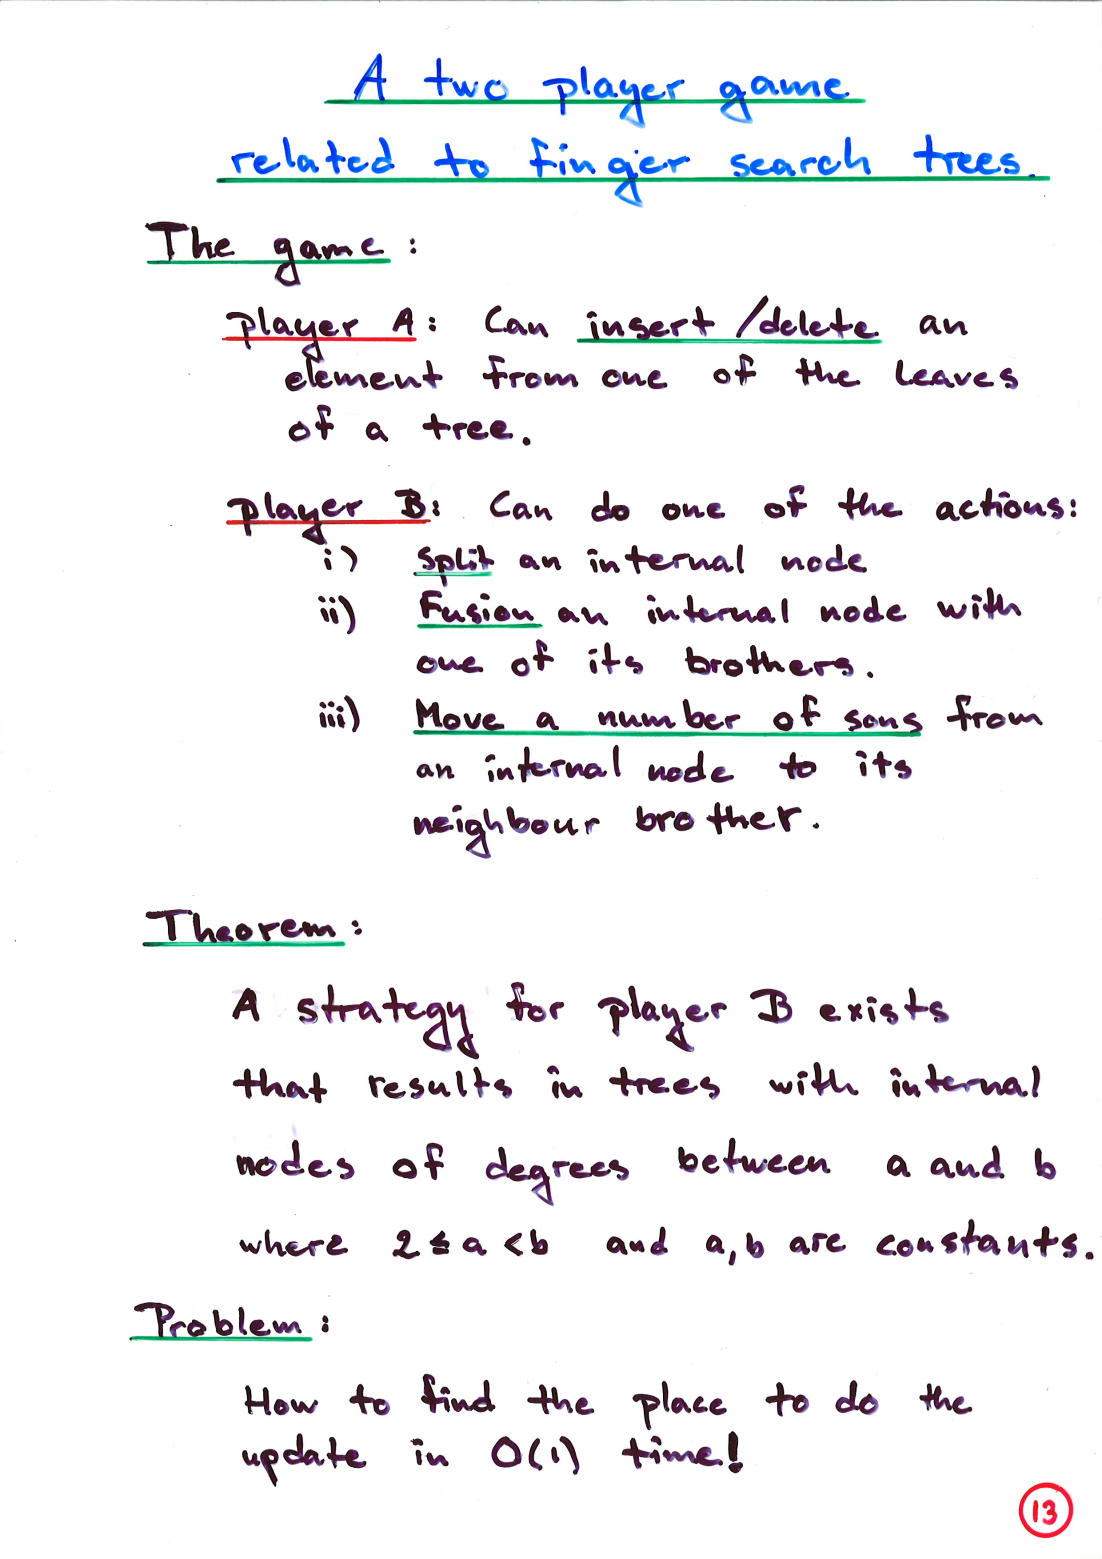 A two player game
related to finger search trees.
The game:
player A: Can insert/delete an
element from one of the leaves
of a tree.
player B: Can do one of the actions:
i) split an internal node
ii) Fusion an internal node with
one of its brothers.
iii) Move a number of sons from
an internal node to its
neighbour brother.
Theorem:
A strategy for player B exists
that results in trees with internal
nodes of degrees between a and b
where 2 ≤ a < b and a, b are constants.
Problem:
How to find the place to do the
update in O(1) time!
13